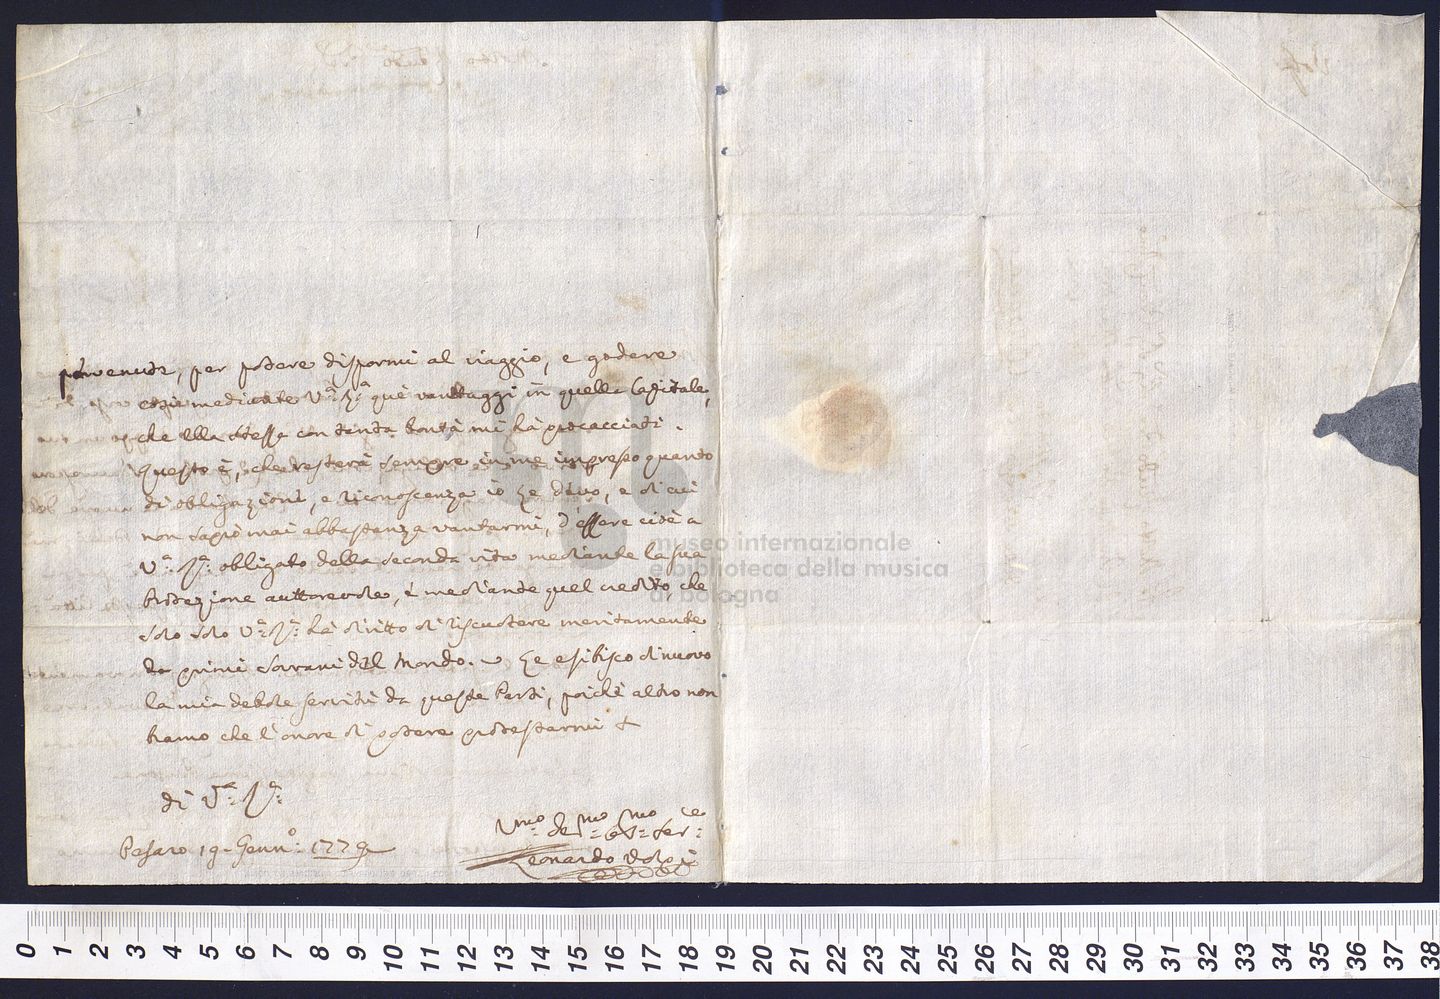 pervenute, per potere dispormi al viaggio, e godere
così mediante V.ª S.ª que' vantaggi in quella Capitale,
che ella stessa con tanta bontà mi hà procacciati.
Questo è, che resterà sempre in me impresso quanto
di obligazioni, e riconoscenza io Le devo, e di cui
non saprò mai abbastanza vantarmi, d'essere cioè a
V.ª S.ª obligato della seconda vita mediante la sua
Protezione auttorevole, è mediante quel credito che
solo solo V.ª S.ª hà diritto di riscuotere meritamente
da primi Sovrani del Mondo. Le esibisco di nuovo
la mia debole servitù da queste Parti, poichè altro non
bramo che l'onore di potere protestarmi
di V.ª S.ª
Pesaro 19. Genn.º 1779
Leonardo
museo internazionale
e biblioteca della musica
di bologna
0 1 2 3 4 5 6 7 8 9 10 11 12 13 14 15 16 17 18 19 20 21 22 23 24 25 26 27 28 29 30 31 32 33 34 35 36 37 38